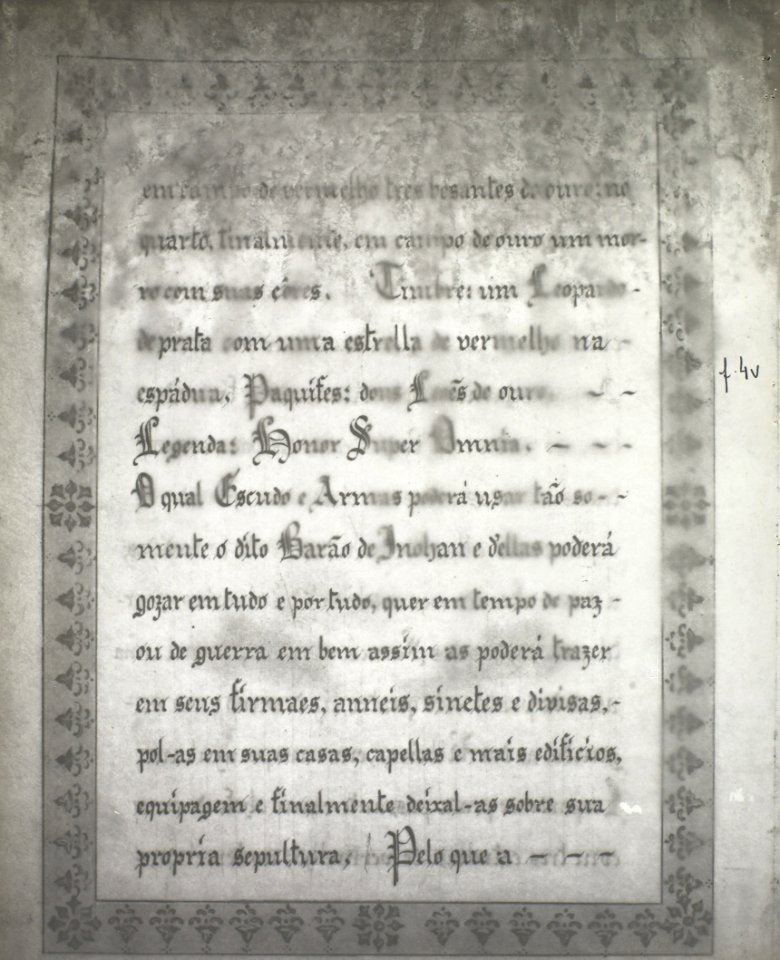 em campo de vermelho tres besantes de ouro: no
quarto, finalmente, em campo de ouro um mor-
ro com suas côres. Timbre: um Leopardo -
de prata com uma estrella de vermelho na -
espádua. Paquifes: dous Leões de ouro. - -
Legenda: Honor Super Omnia. - - -
O qual Escudo e Armas poderá usar tão so- -
mente o dito Barão de Inohan e d'ellas poderá
gozar em tudo e por tudo, quer em tempo de paz -
ou de guerra em bem assim as poderá trazer
em seus firmaes, anneis, sinetes e divisas, -
pol-as em suas casas, capellas e mais edificios,
equipagem e finalmente deixal-as sobre sua
propria sepultura. Pelo que a - - -
f. 4v